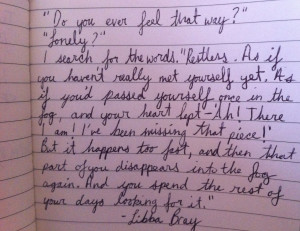 "Do you ever feel that way?"
"Lonely?"
I search for the words. "Restless. As if
you haven't really met yourself yet. As
if you'd passed yourself once in the
fog, and your heart lept - 'Ah! There
I am! I've been missing that piece!'
But it happens too fast, and then that
part of you disappears into the fog
again. And you spend the rest of
your days looking for it."
- Libba Bray